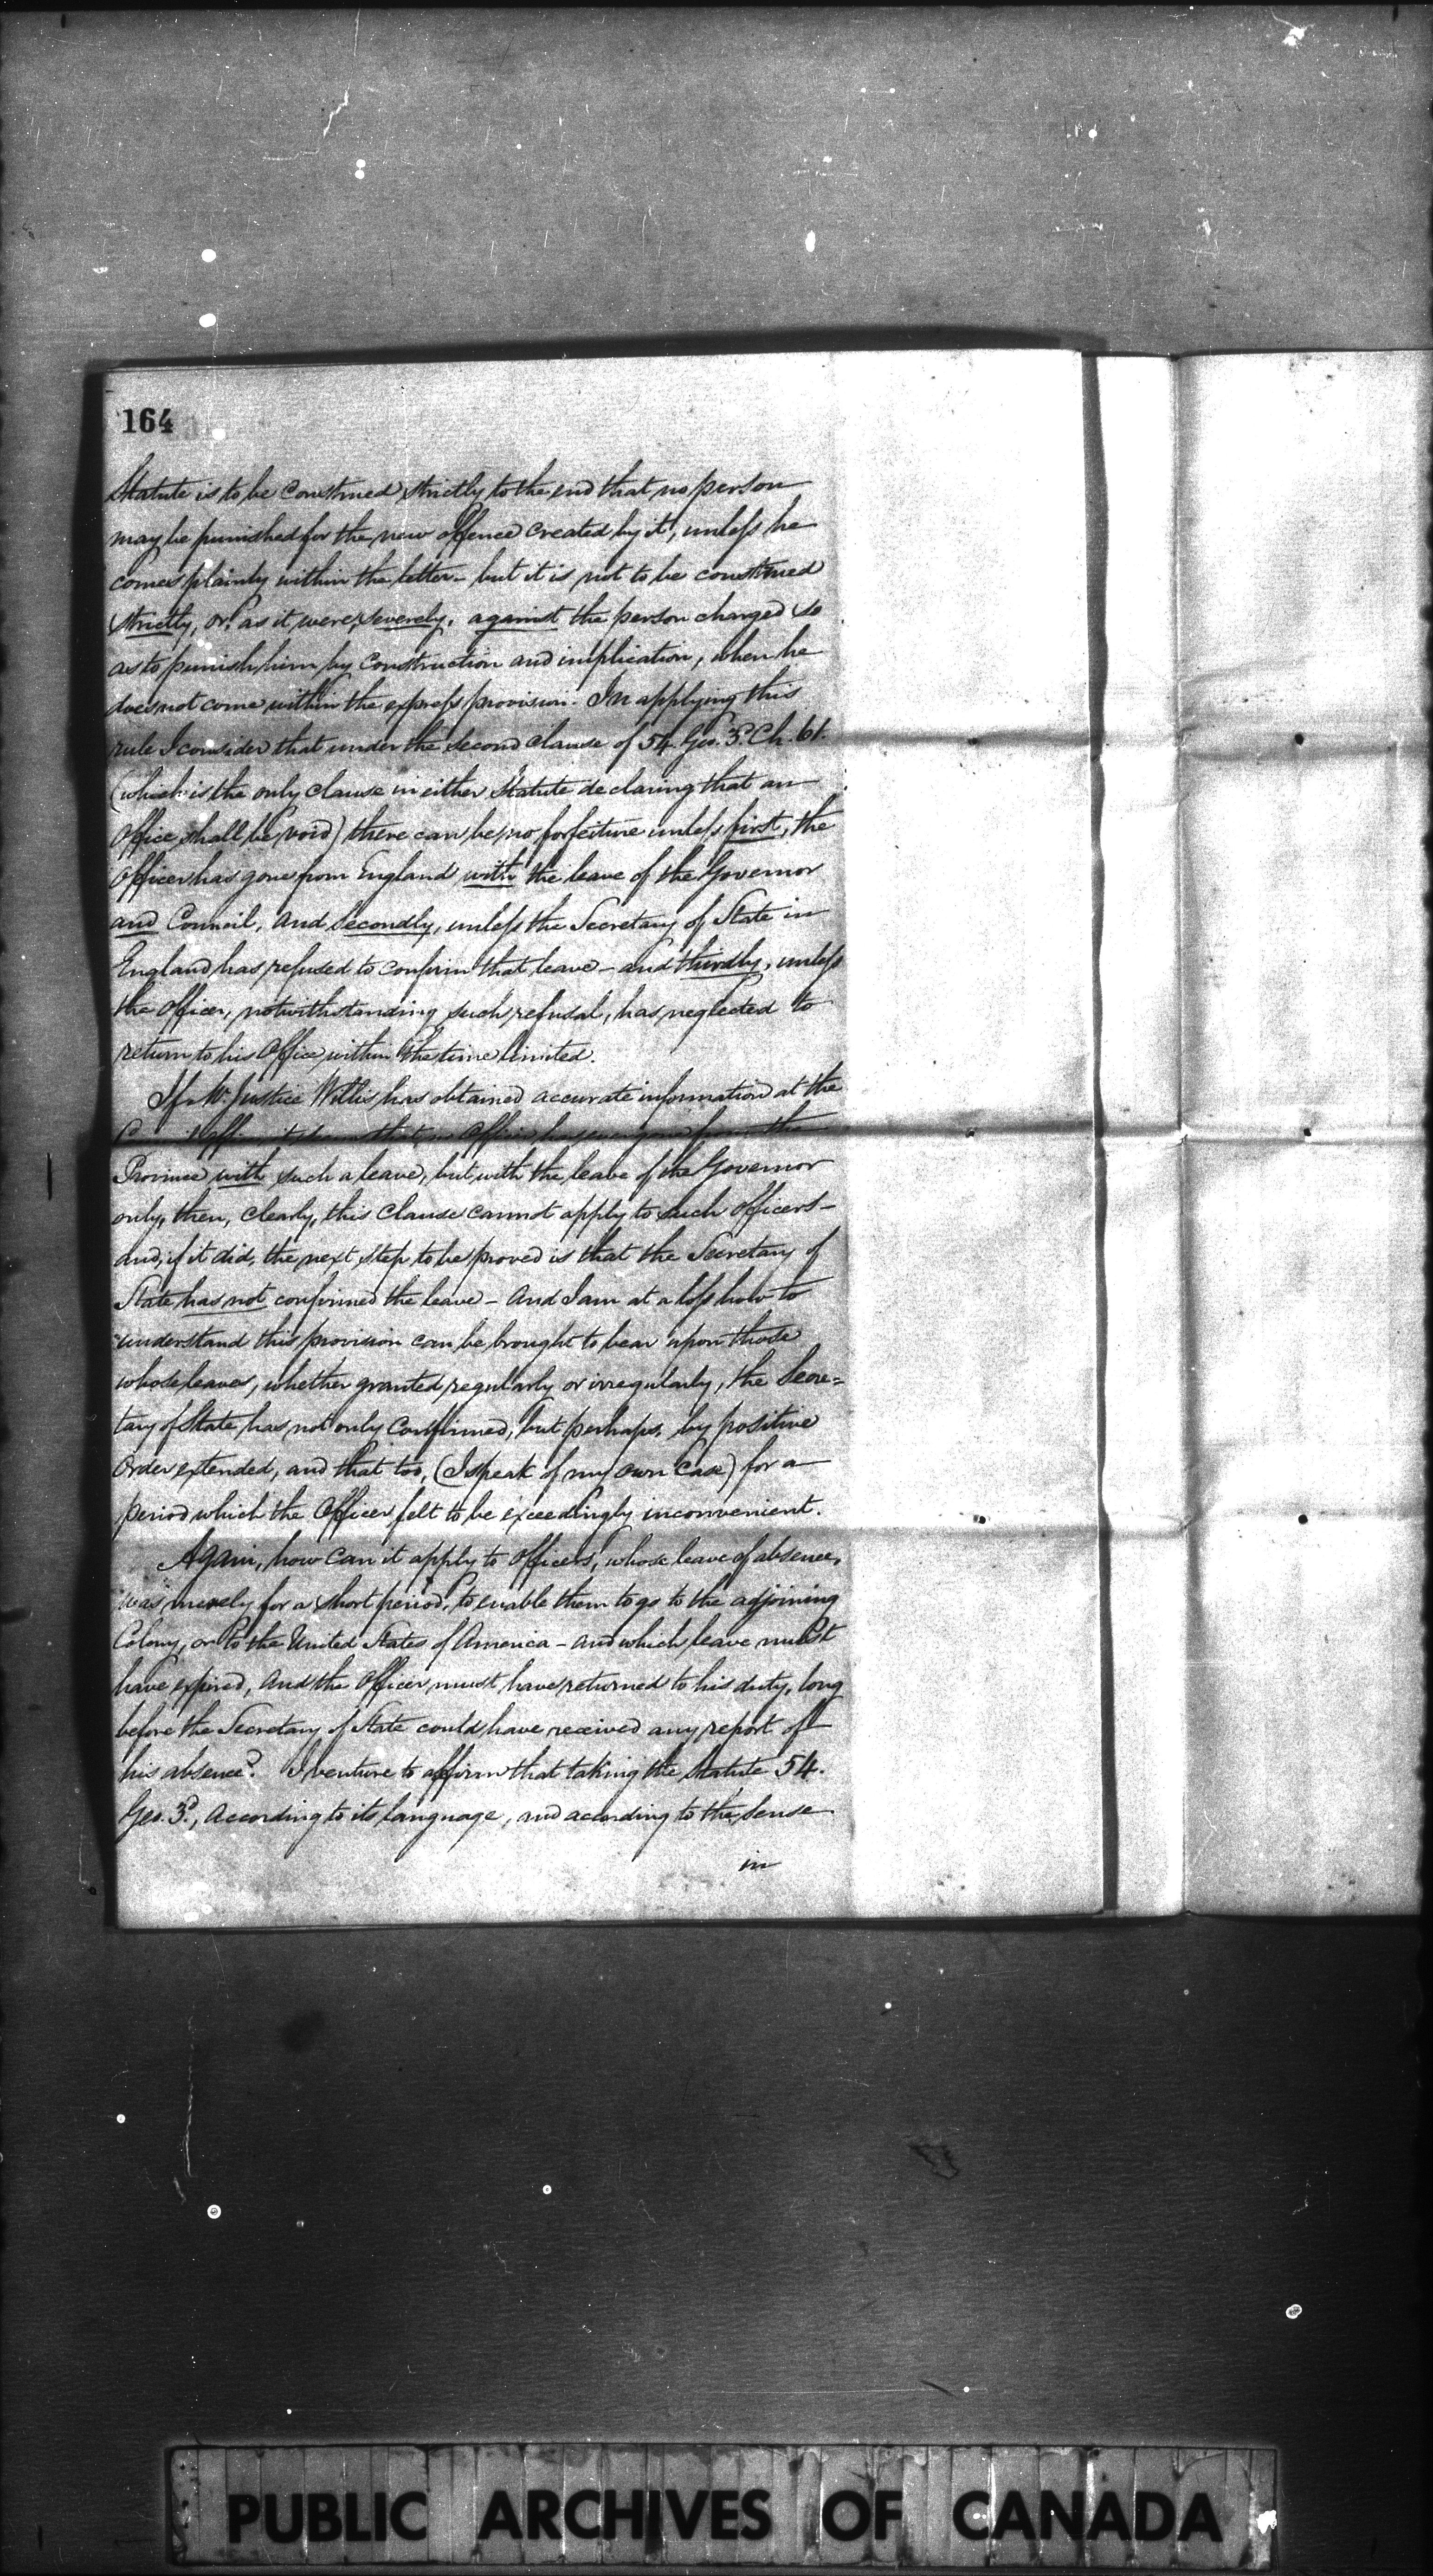 164
Statute is to be construed strictly to the end that no person
may be punished for the new offence created by it, unless he
comes plainly within the letter – but it is not to be construed
strictly, or, as it were, severely, against the person charged so
as to punish him by construction and implication, when he
does not come within the express provision. In applying this
rule I consider that under the second clause of 54. Geo. 3.d Ch. 61.
(which is the only clause in either Statute declaring that an
Office shall be void) there can be no forfeiture unless first, the
Officer has gone from England with the leave of the Governor
and Council, and secondly, unless the Secretary of State in
England has refused to confirm that leave – and thirdly, unless
the Officer, notwithstanding such refusal, has neglected to
return to his Office within the time limited.
If Mr. Justice Willis has obtained accurate information at the
Officer has ever gone from the
Province with such a leave, but with the leave of the Governor
only, then, clearly, this Clause cannot apply to such Officers –
and, if it did, the next step to be proved is that the Secretary of
State has not confirmed the leave – And I am at a loss how to
understand this provision can be brought to bear upon those
whose leaves, whether granted regularly or irregularly, the Secre=
tary of State has not only confirmed, but perhaps, by positive
Order extended, and that too, (I speak of my own Case) for a
period which the Officer felt to be exceedingly inconvenient.
Again, how can it apply to Officers, whose leave of absence,
was merely for a short period, to enable them to go to the adjoining
Colony, or to the United States of America – and which leave must
have expired, and the Officer must have returned to his duty, long
before the Secretary of State could have received any report of
his absence? I venture to affirm that taking the Statute 54.
Geo. 3.d, According to its language, and according to the sense
in
PUBLIC ARCHIVES OF CANADA